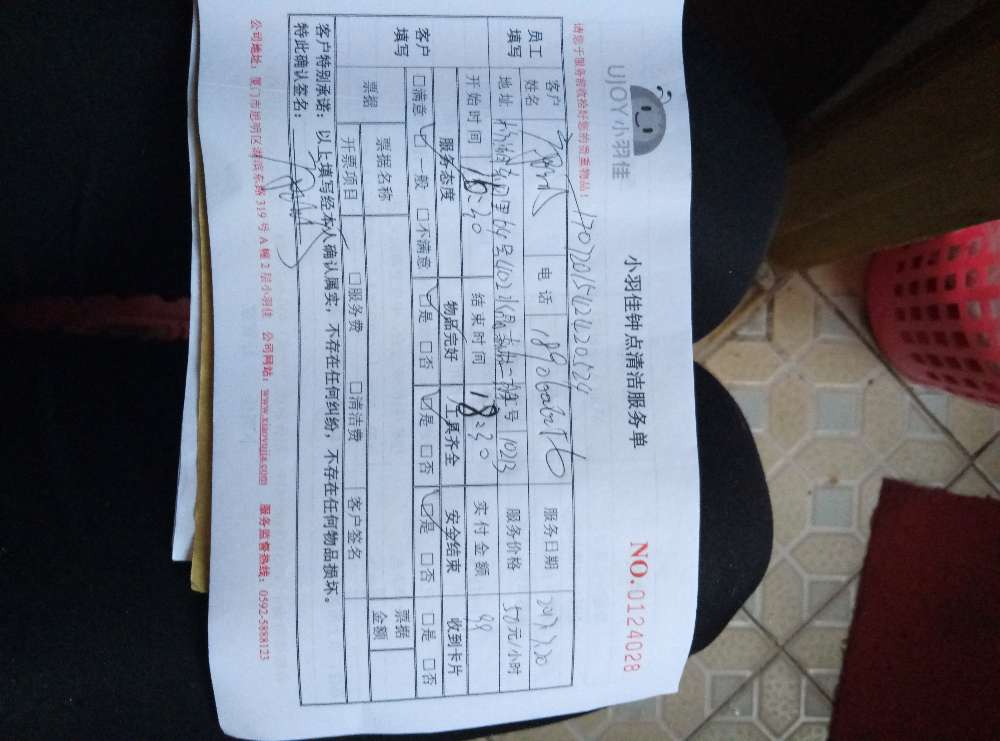 UJOY小羽佳
小羽佳钟点清洁服务单
NO.0124028
请您于服务前收拾好您的贵重物品!
员工填写
客户姓名
电话
服务日期
地址
102
服务价格 50元/小时
开始时间 16:30 结束时间 18:30 实付金额 99
客户填写
服务态度 物品完好 工具齐全 安全结束 收到卡片
□满意 □一般 □不满意 □是 □否 □是 □否 □是 □否 □是 □否
票据 票据名称 票据金额
开票项目 □服务费 □清洁费 客户签名
客户特别承诺:以上填写经本人确认属实,不存在任何纠纷,不存在任何物品损坏。
特此确认签名:
公司地址:厦门市思明区湖滨东路319号A幢2层小羽佳 公司网站:www.xiaoyujia.com 服务监督热线:0592-5888123